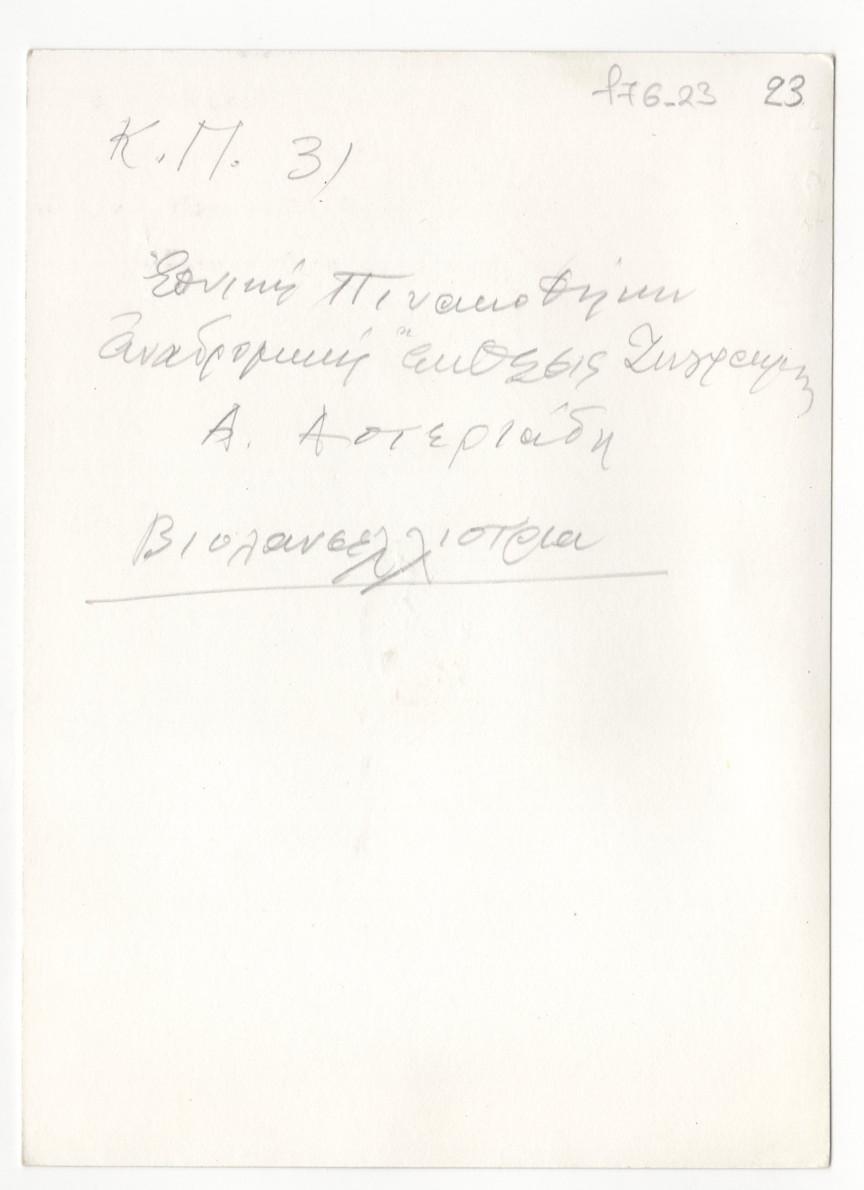 f76-23 23
Κ.Π. 31
Ἐθνική Πινακοθήκη
Ἀναδρομική Ἔκθεσις Ζωγράφου
Α. Αστεριάδη
Βιολανσελλίστρια